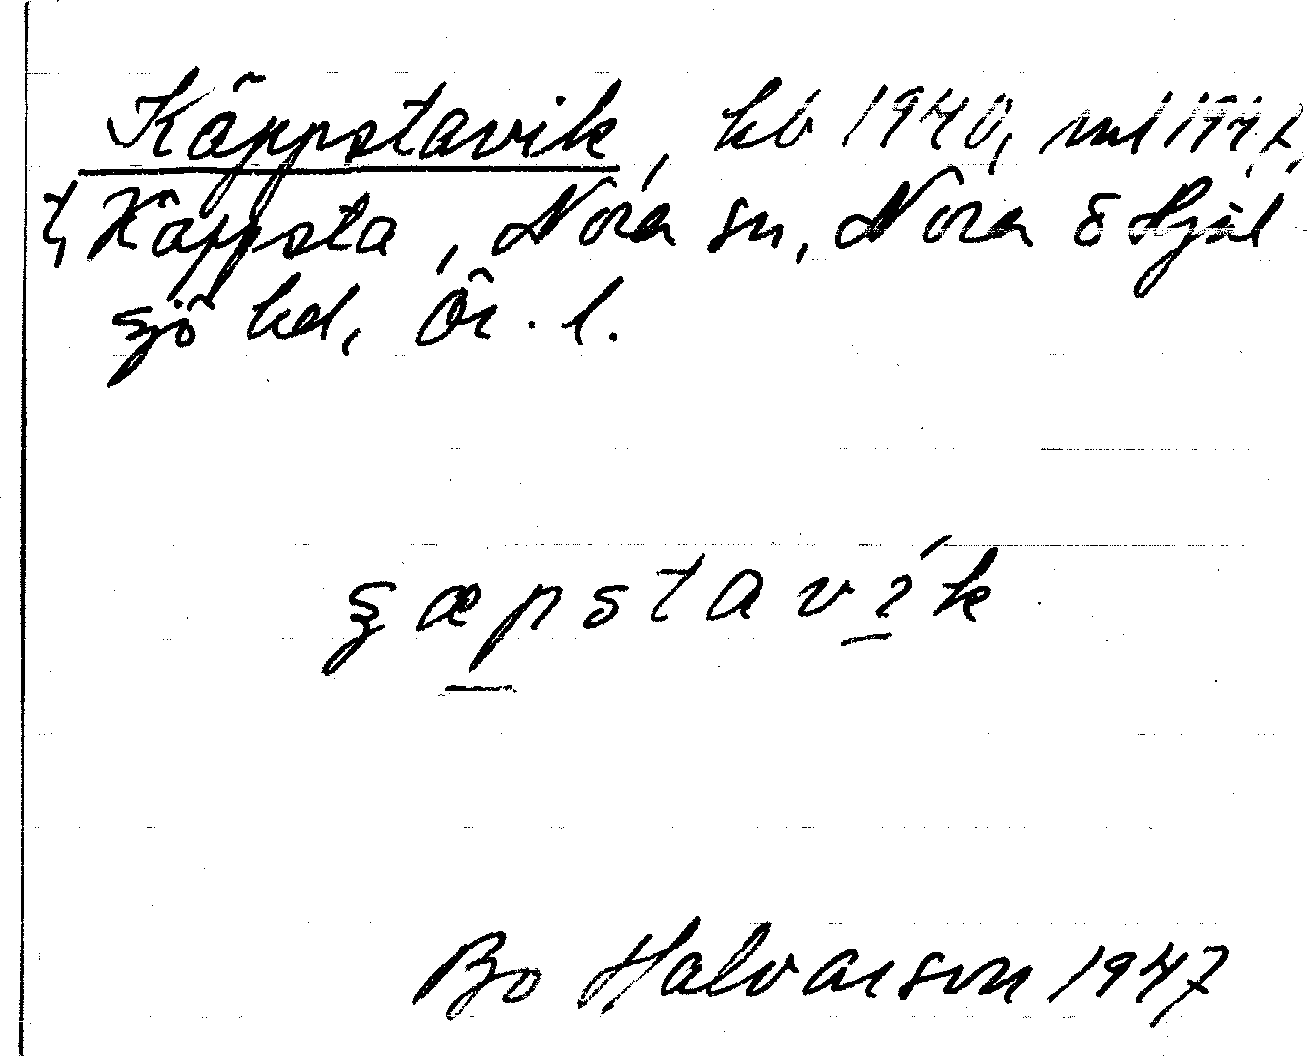 Käppstavik, kb 1940, ml 1942,
t, Käppsta, Nora sn, Nora o Hjul
sjö hd, Ör. l.
ʂæpstavìk
Bo Halvarson 1947